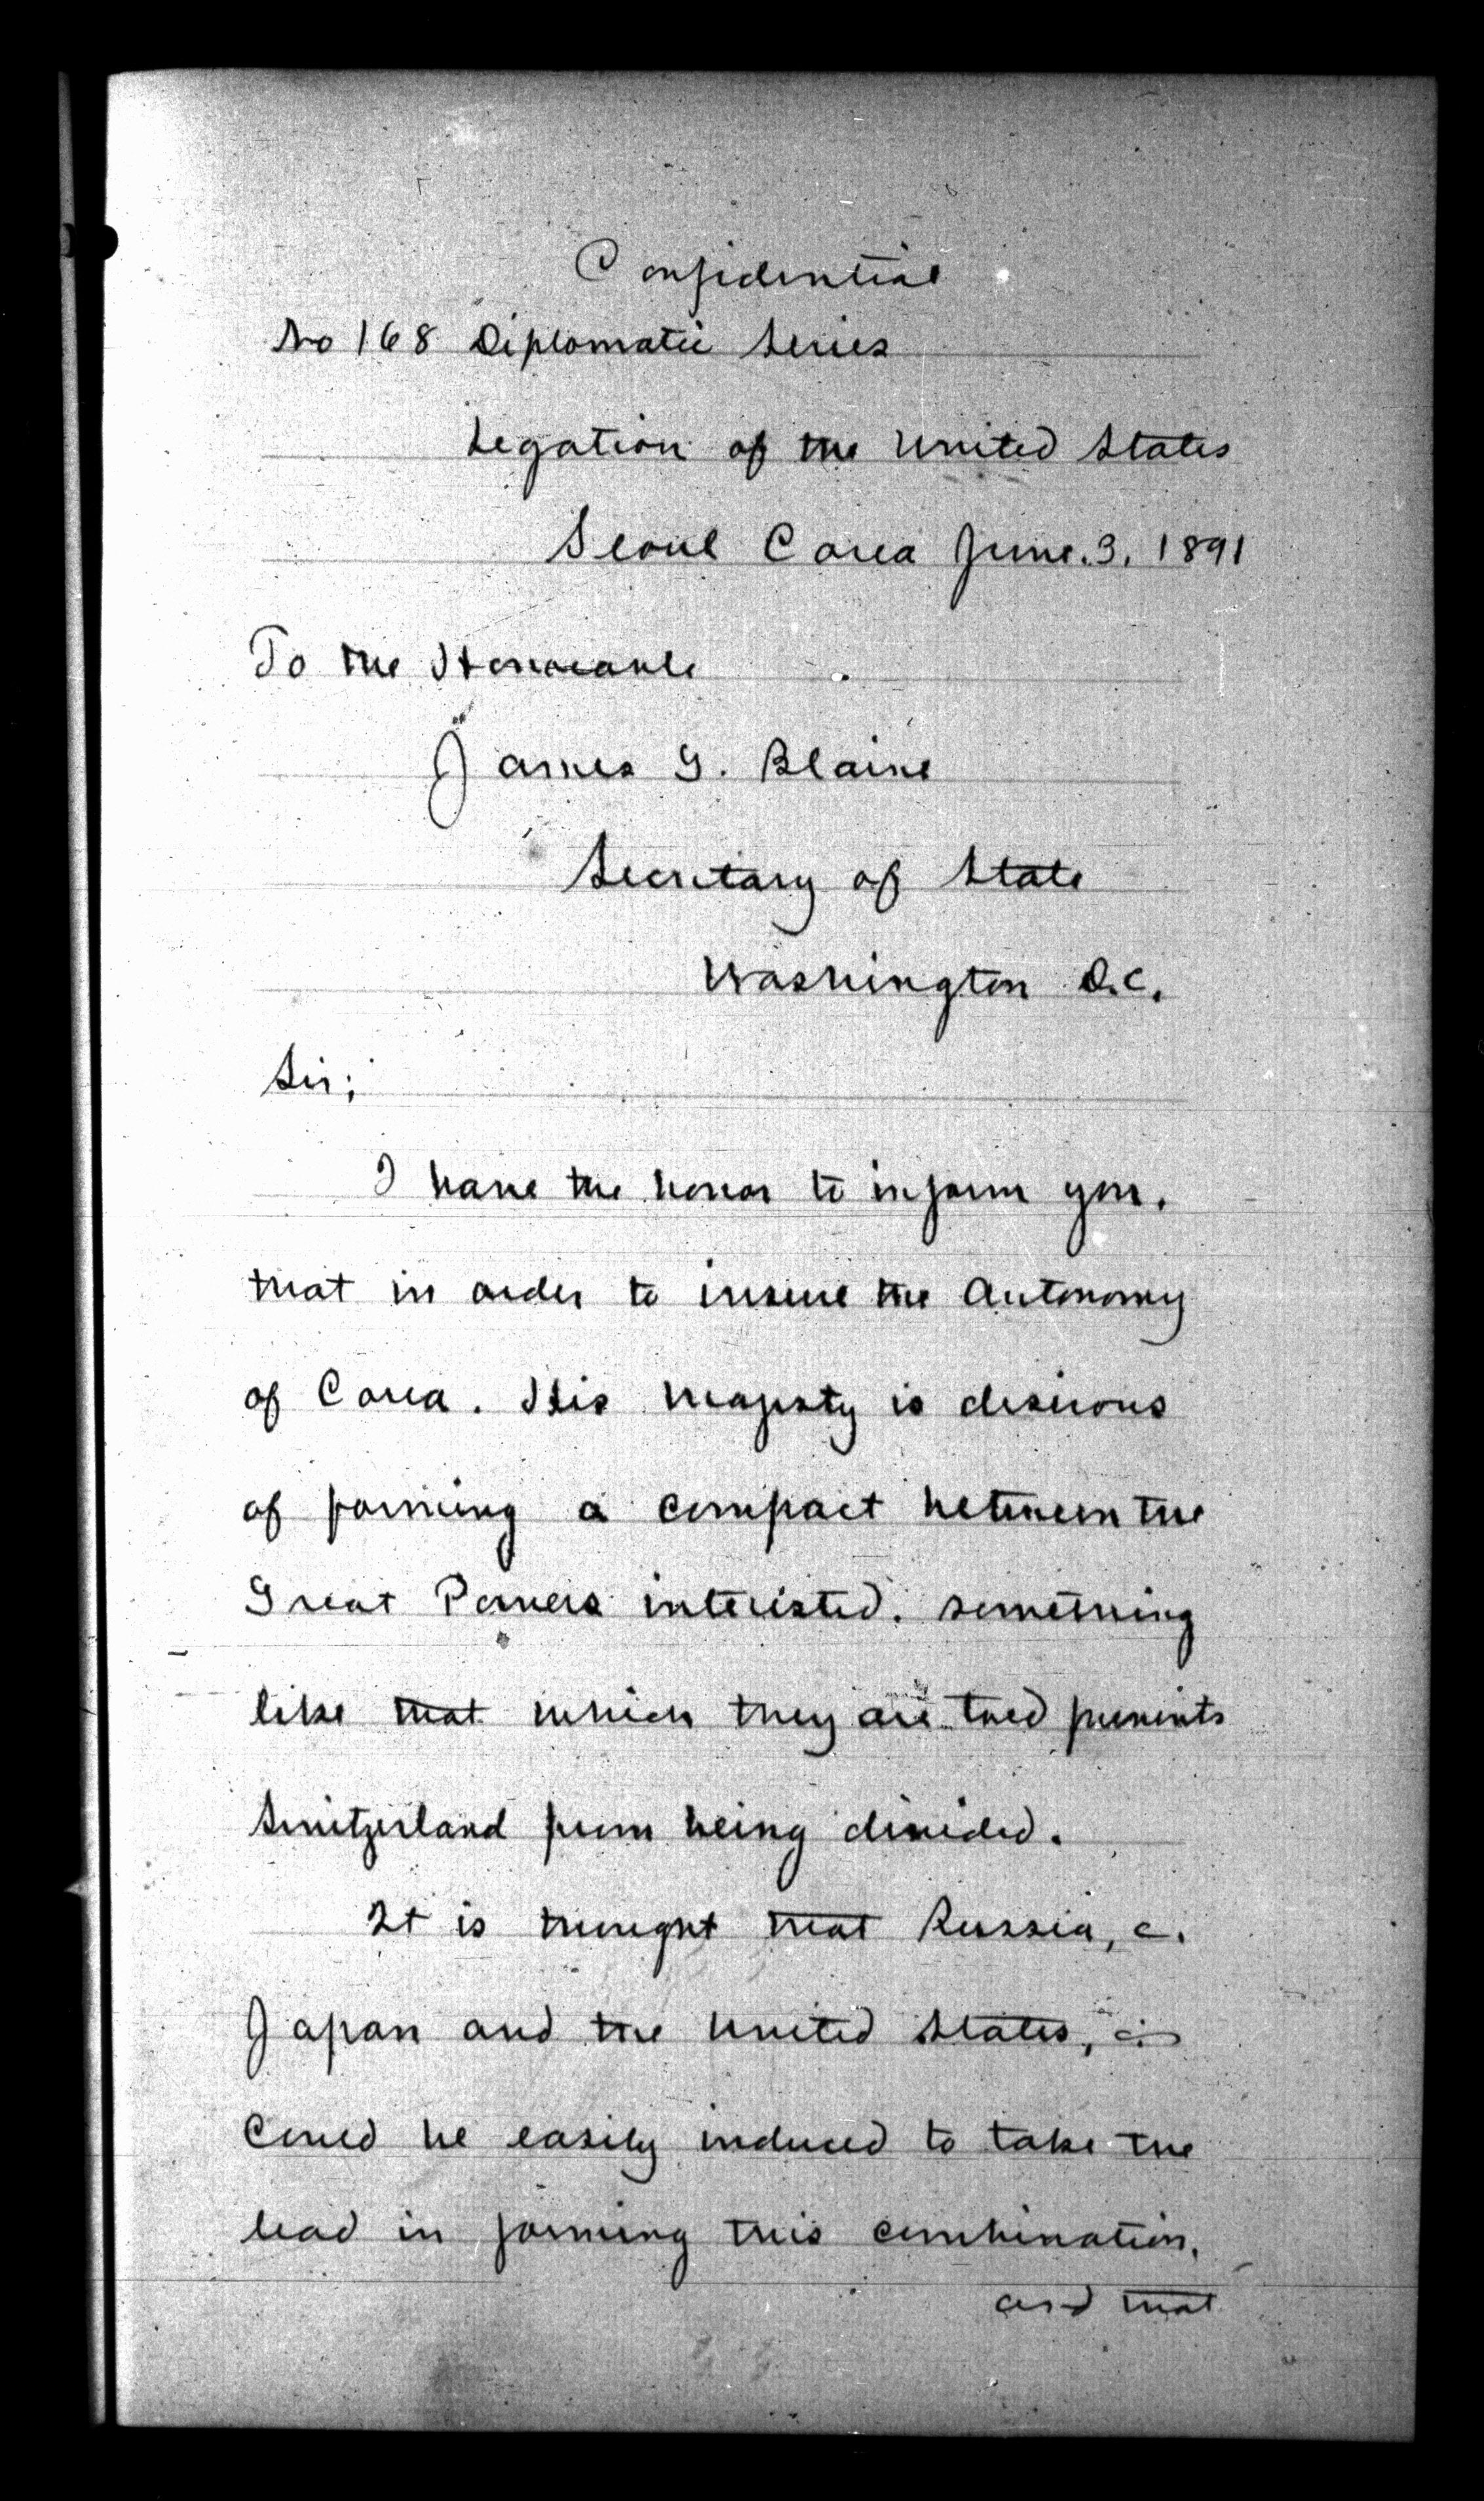 Confidential
No 168 Diplomatic Series
Legation of the United States
Seoul Corea June. 3. 1891
To the Honorable
James G. Blaine
Secretary of State
Washington D.C.
Sir;
I have the honor to inform you.
that in order to insure the Autonomy
of Corea. His Majesty is desirous
of forming a compact between the
Great Powers interested. something
like that which they are told prevents
Switzerland from being divided.
It is thought that Russia,
Japan and the United States,
could be easily induced to take the
lead in forming this combination.
and that